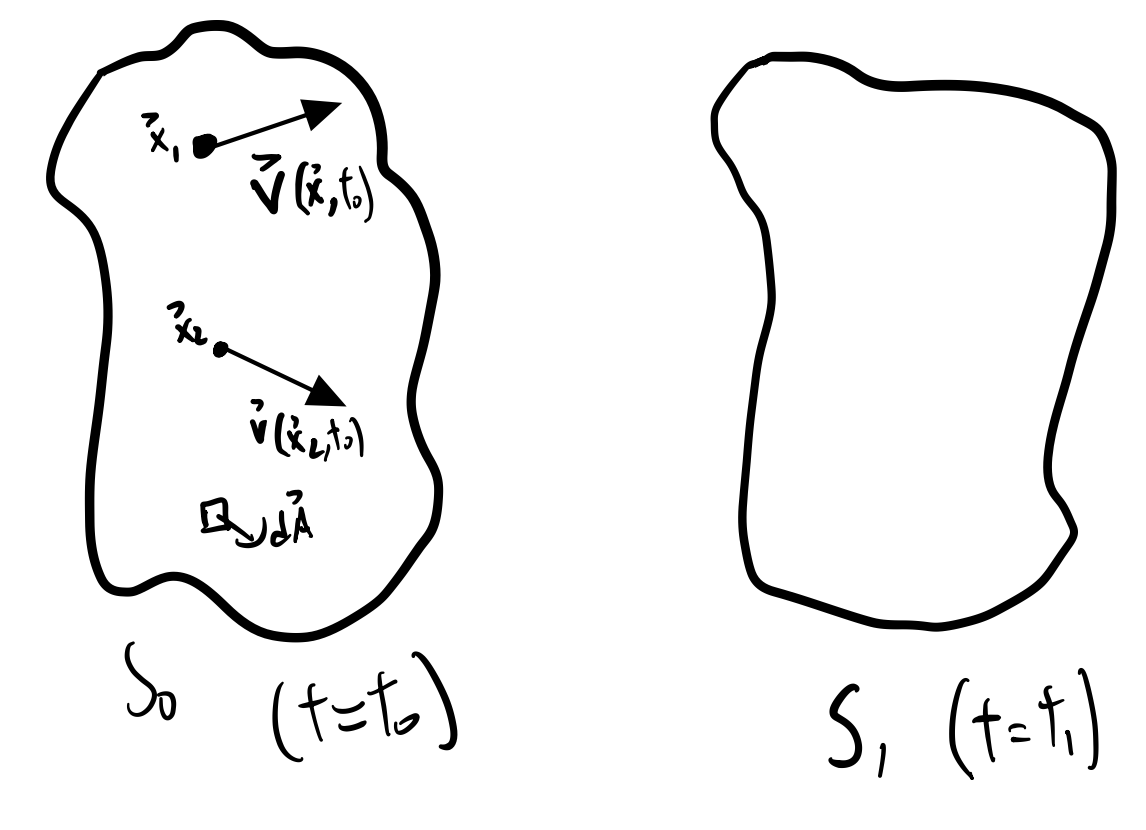 x⃗₁
V⃗(x⃗₁,t₀)
x⃗₂
v⃗(x⃗₂,t₀)
dA⃗
S₀ (t=t₀)
S₁ (t=t₁)